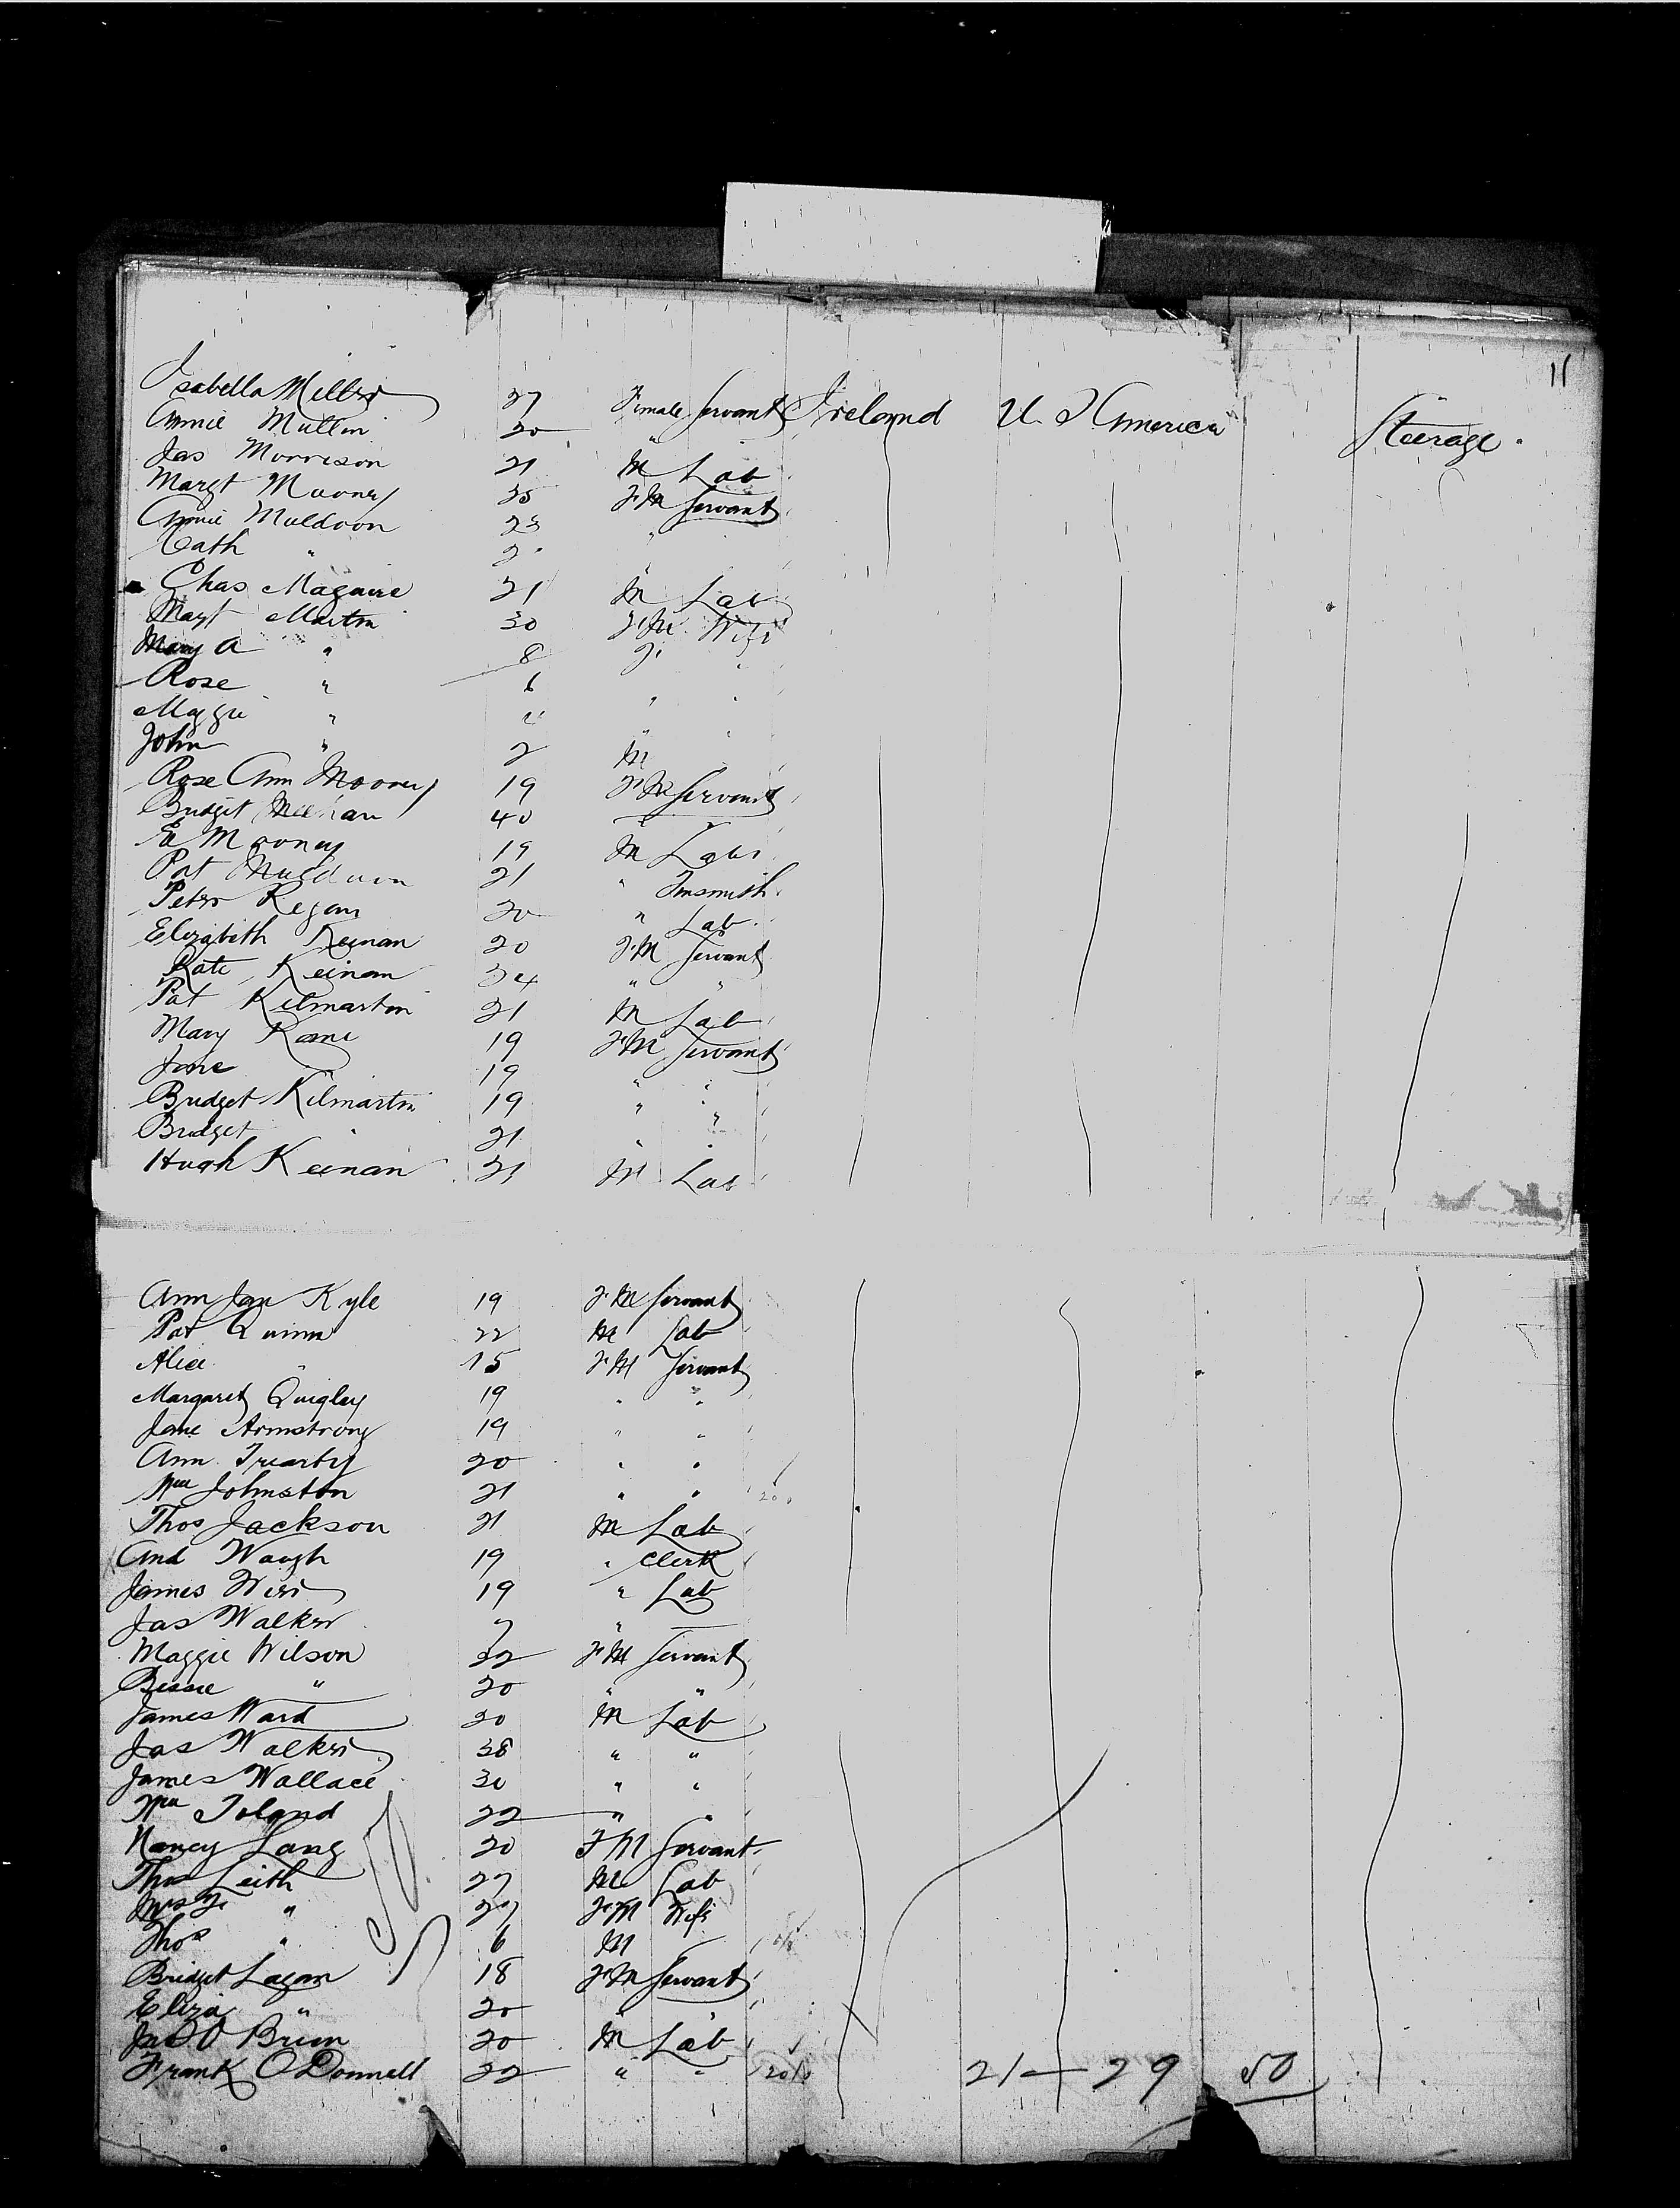 11
Isabella Miller 27 Female Servant Ireland U. S America Steerage.
Annie Mullin 20 "
Jas Morrison 21 M Lab
Margt Mooney 35 F.M Servant
Annie Muldoon 23 "
Cath "
Chas Maguire 21 M Lab
Margt Martin 30 F.M. Wife
Mary A " 8 F.
Rose " 6 " "
Maggie " " " "
John " 2 M
Rose Ann Mooney 19 F.M Servant
Bridget Meehan 40
Mooney 19 M Labr
Pat Muldoon 21 " Tinsmith
Peter Regan 20 " Lab
Elizabeth Keenan 20 F.M Servant
Kate Keenan 34 " "
Pat Kilmartin 21 M Lab
Mary Kane 19 F.M Servant
Jane 19 " "
Bridget Kilmartin 19 " "
Bridget " 21 " "
Hugh Keenan 21 M Lab
Ann Jan Kyle 19 F.M Servant
Pat Quinn 22 M Lab
Alice " 15 F.M Servant
Margaret Quigley 19 " "
Jane Armstrong 19 " "
Ann 20 " "
Wm Johnston 21 " "
Thos Jackson 21 M Lab
And Waugh 19 " Clerk
James Weir 19 " Lab
Jas Walker "
Maggie Wilson 22 F.M Servant
Bessie " 20 " "
James Ward 20 M Lab
Jas Walker 38 " "
James Wallace 30 " "
Wm Toland 22 " "
Nancy Lang 20 F M Servant
Thos Leith 27 M Lab
Mrs " 27 F.M Wife
Thos " 6 M
Bridget Lagan 18 F.M Servant
Eliza " 20 " "
Jno O Brien 20 M Lab
Frank O Donnell 22 " " 21 — 29 50